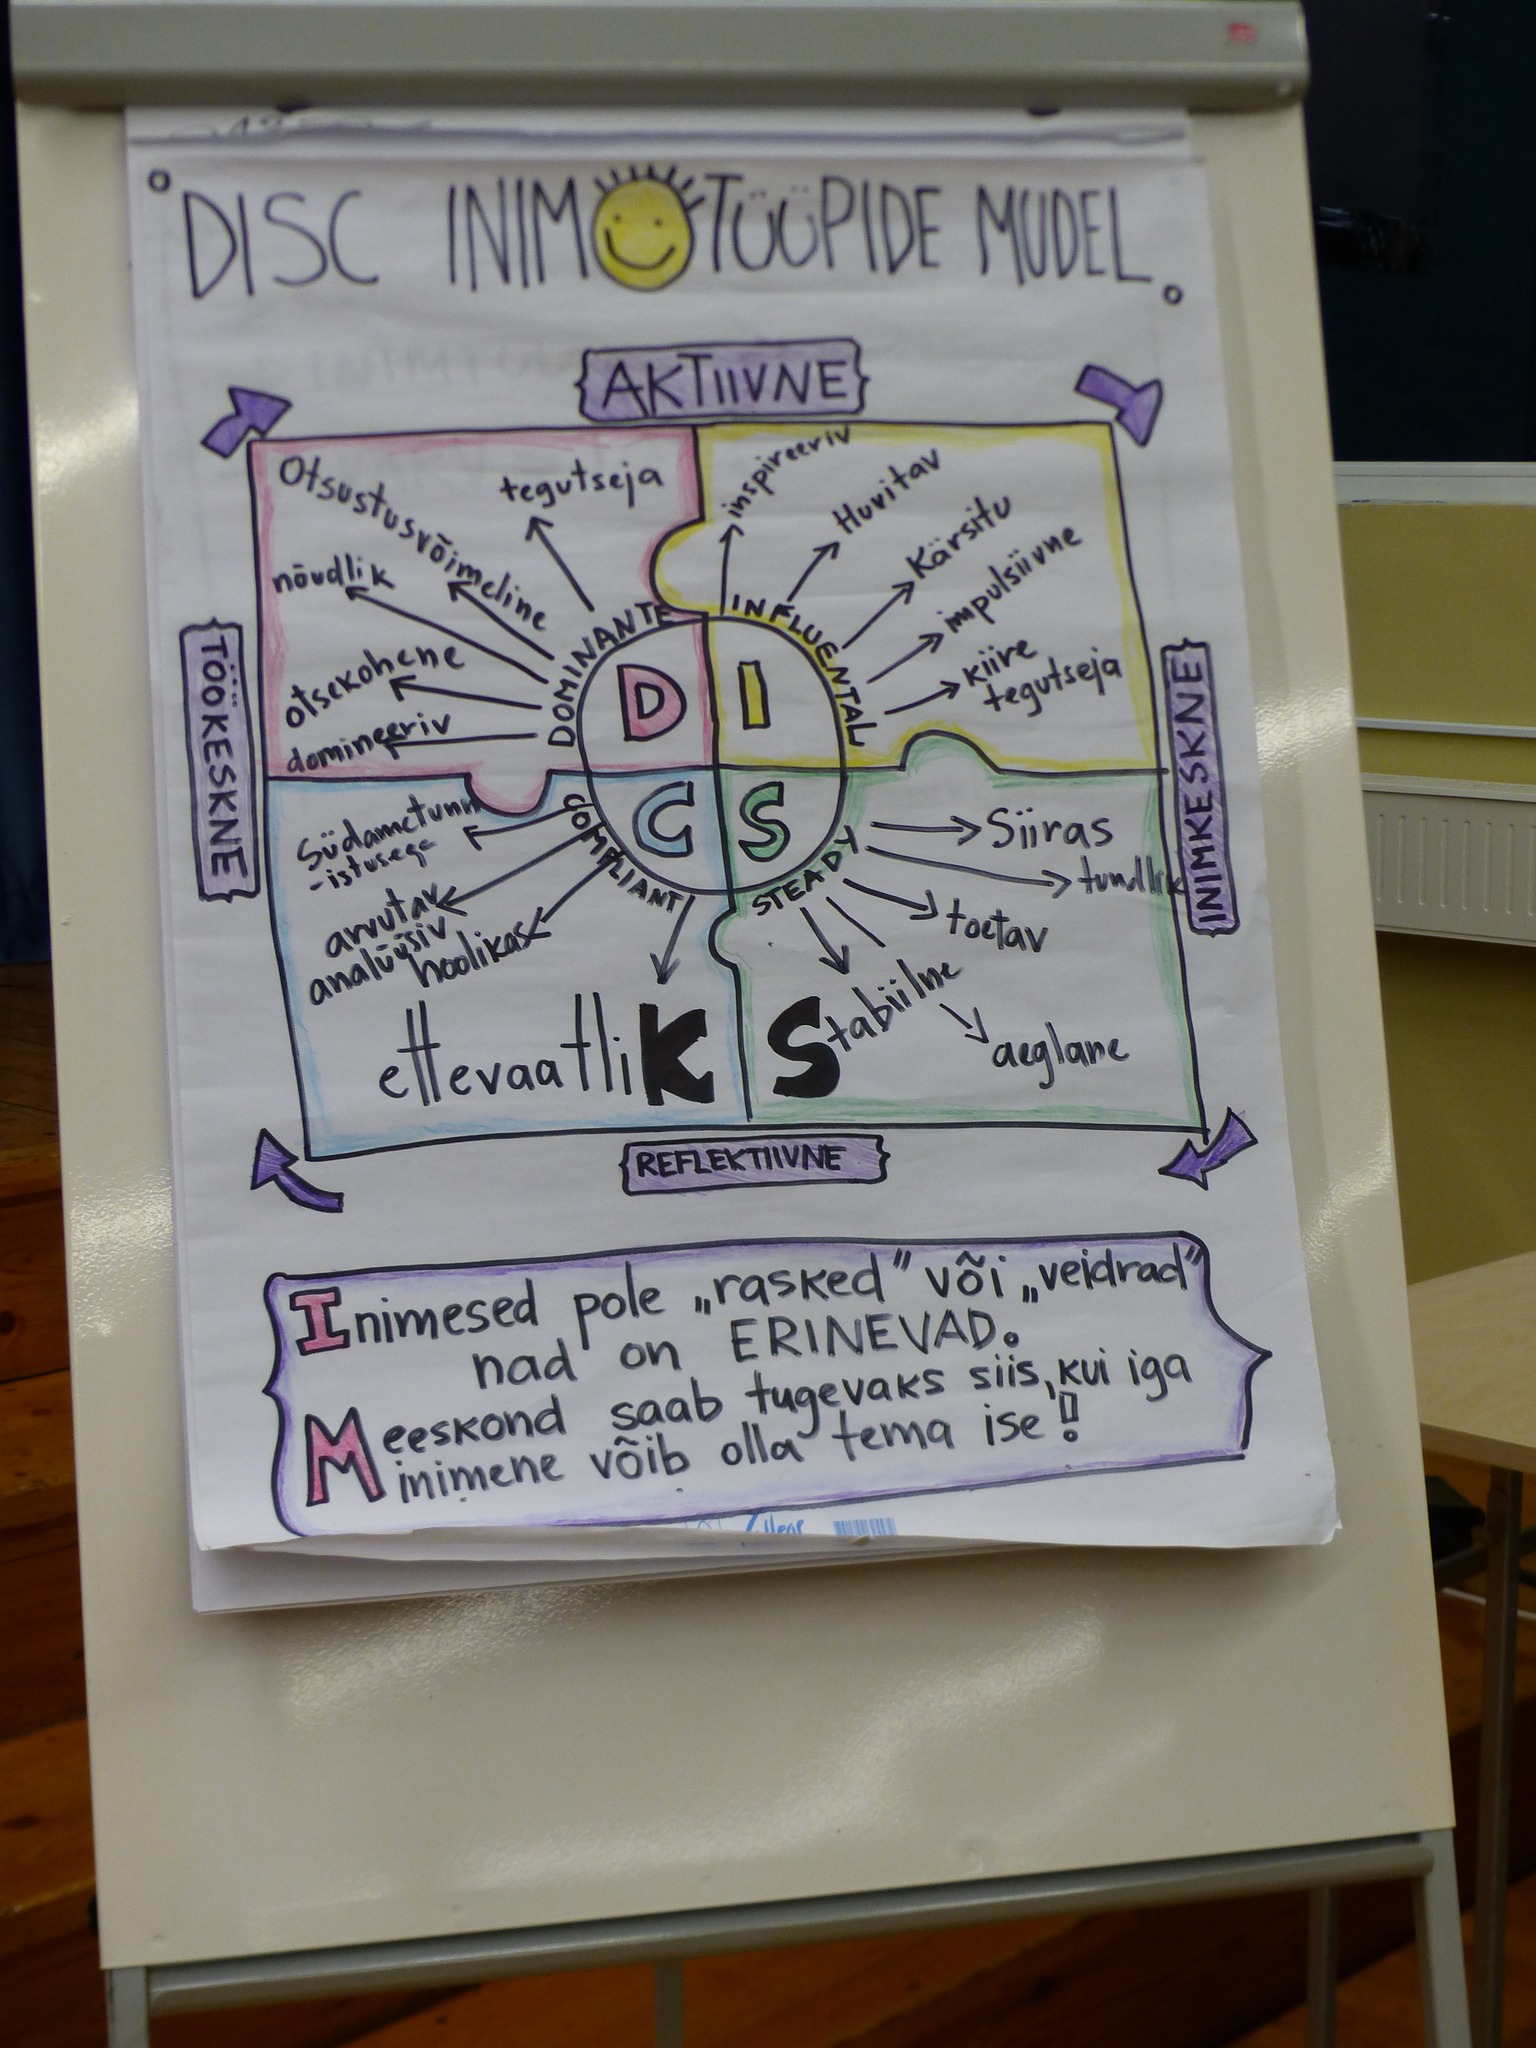 DISC INIMTÜÜPIDE MUDEL
AKTIIVNE
TÖÖKESKNE
INIMKESKNE
REFLEKTIIVNE
tegutseja
Otsustusvõimeline
nõudlik
otsekohene
domineeriv
DOMINANTE
D
inspireeriv
Huvitav
Kärsitu
impulsiivne
kiire
tegutseja
INFLUENTAL
I
C
COMPLIANT
Südametunn
-istusega
arvutav
analüüsiv
hoolikas
ettevaatliK
S
STEADY
Siiras
tundlik
toetav
Stabiilne
aeglane
Inimesed pole „rasked” või „veidrad”
nad on ERINEVAD.
Meeskond saab tugevaks siis, kui iga
inimene võib olla tema ise!